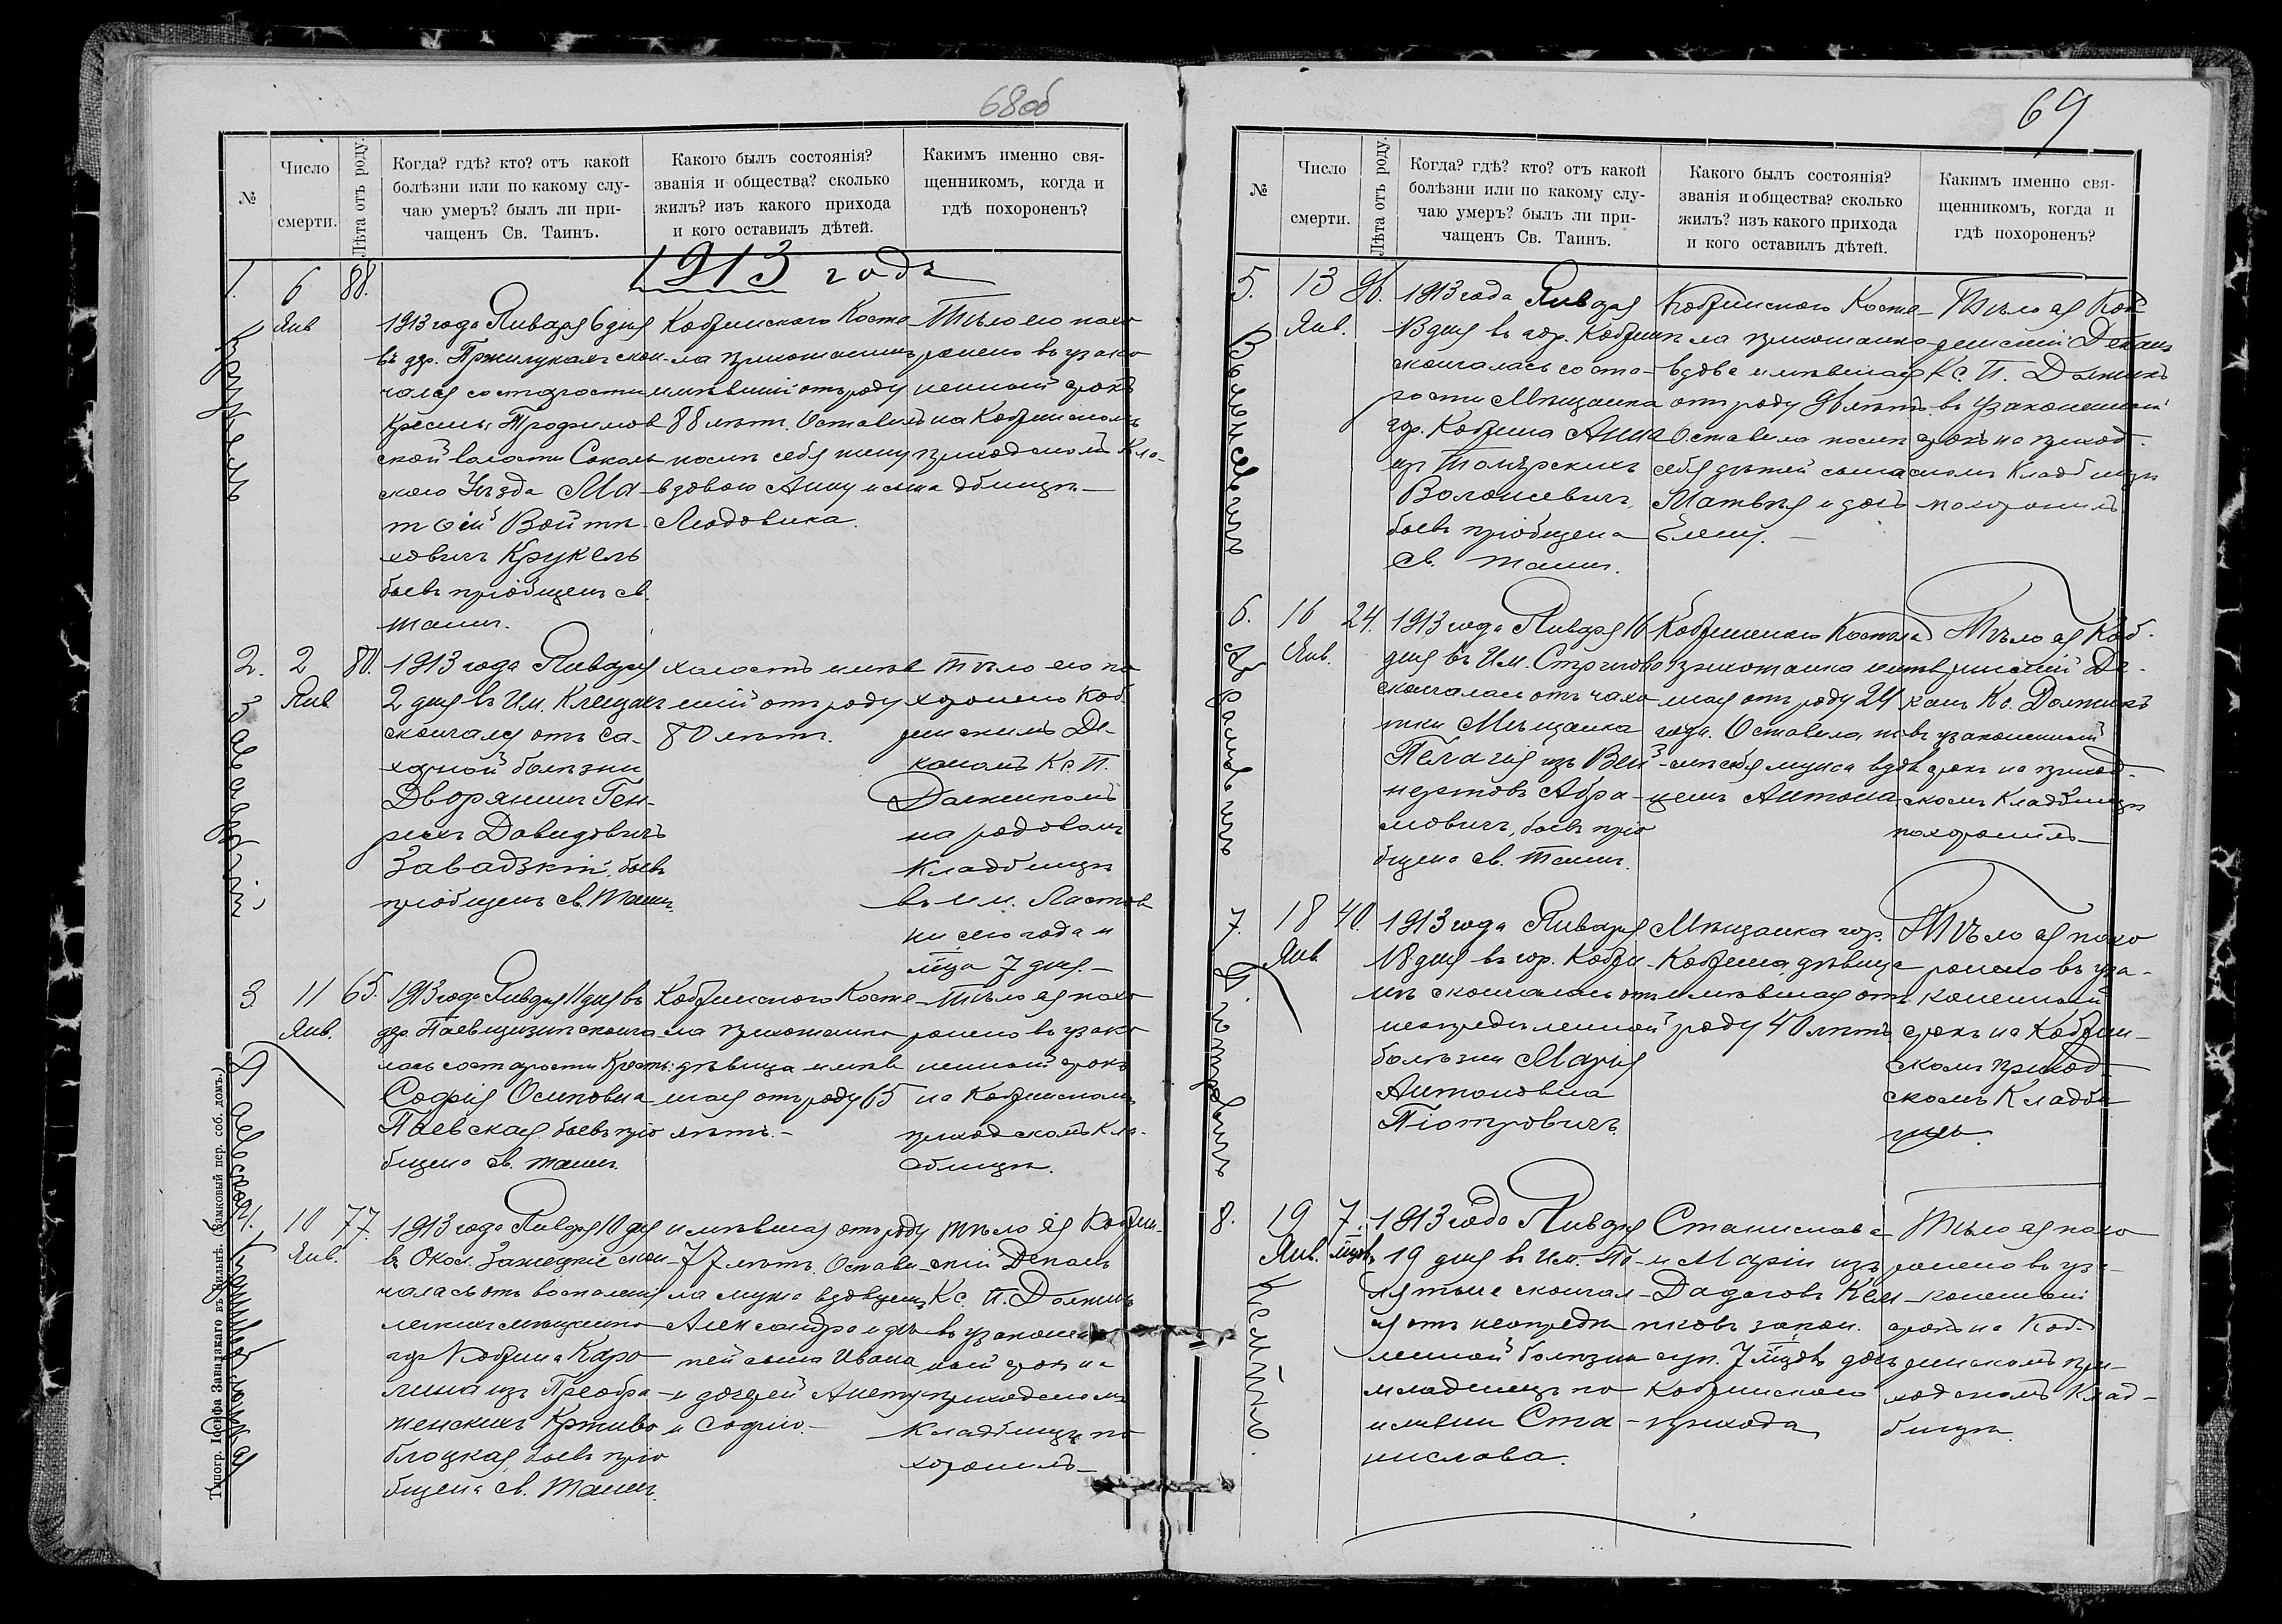 68об
№
Число
смерти.
Лѣта отъ роду.
Когда? гдѣ? кто? отъ какой
болѣзни или по какому слу-
чаю умеръ? былъ ли при-
чащенъ Св. Таинъ.
Какого былъ состоянія?
званія и общества? сколько
жилъ? изъ какого прихода
и кого оставилъ дѣтей.
Какимъ именно свя-
щенникомъ, когда и
гдѣ похороненъ?
1913 годъ
1.
Крукель
6
Янв
88.
1913 года Января 6 дня
въ дер. Пржилукахъ скон-
чался со старости
Кресть: Трофимов
ской волости Соколь
скаго Уѣзда Ма-
тѳiй Войтѣ
ховичъ Крукель
бывъ пріобщенъ св.
таинъ.
Кобринскаго Косте
ла прихожанинъ
имѣвшій отъ роду
88 лѣтъ. Оставилъ
послѣ себя жену
вдовою Анну и сына
Людовика.
Тѣло его похо
ронено въ узако
ненный срокъ
на Кобринскомъ
приходскомъ Кла-
дбищѣ
2.
Завадзкій
2
Янв
80.
1913 года Января
2 дня въ Им. Клещахъ
скончался отъ са-
харной болѣзни
Дворянинъ Ген-
рихъ Давидовичъ
Завадзкій, бывъ
пріобщенъ св. Таинъ.
холостъ имѣв
шій отъ роду
80 лѣтъ.
Тѣло его по
хоронено Коб
ринскимъ Де-
каномъ Кс. П.
Должикомъ
на родовомъ
Кладбищѣ
въ им. Ластов
ки сего года и
мѣца 7 дня.
3
Паевская
11
Янв.
65.
1913 года Января 11 дня въ
дер. Паевщизнѣ сконча
лась со старости Кресть:
Софія Осиповна
Паевская бывъ прiо
бщена св. таинъ.
Кобринскаго Косте
ла прихожанка
дѣвица имѣв
шая отъ роду 65
лѣтъ.
Тѣло ея похо
ронено въ узако
ненный срокъ
на Кобринскомъ
приходскомъ Кла-
дбищѣ.
4.
Кртивоблоцкая
10
Янв.
77.
1913 года Января 10 дня
въ Окол. Замецкіе скон-
чалась отъ воспаленія
легкихъ мѣщанка
гор Кобрина Каро
лина изъ Преобра-
женскихъ Кртиво
блоцкая, бывъ пріо
бщена св. Таинъ.
имѣвшая отъ роду
77 лѣтъ. Остави-
ла мужа вдовцемъ
Александра и дѣ
тей сына Ивана
и дочерей Анету
и Софію.
Тѣло ея Кобрин-
скій Деканъ
Кс. П. Должикъ
въ узаконен
ный срокъ на
приходскомъ
Кладбищѣ по
хоронилъ
Типогр. Іосифа Завадзкаго въ Вильнѣ. (Замковый пер. соб. домъ.)
69
№
Число
смерти.
Лѣта отъ роду.
Когда? гдѣ? кто? отъ какой
болѣзни или по какому слу-
чаю умеръ? былъ ли при-
чащенъ Св. Таинъ.
Какого былъ состоянія?
званія и общества? сколько
жилъ? изъ какого прихода
и кого оставилъ дѣтей.
Какимъ именно свя-
щенникомъ, когда и
гдѣ похороненъ?
5.
Волонсевичъ
13
Янв.
96.
1913 года Января
13 дня въ гор. Кобринѣ
скончалась со ста-
рости Мѣщанка
гор. Кобрина Анна
изъ
Волонсевичъ,
бывъ пріобщена
св. таинъ.
Кобринскаго Косте-
ла прихожанка
вдова имѣвшая
отъ роду 96 лѣтъ.
Оставила послѣ
себя дѣтей сына
Матвѣя и дочь
Елену.
Тѣло ея Коб
ринскій Деканъ
Кс. П. Должикъ
въ узаконенный
срокъ на приход-
скомъ Кладбищѣ
похоронилъ
6.
Абрамовичъ
16
Янв.
24.
1913 года Января 16
дня въ Им. Стригово
скончалась отъ чахо
тки Мѣщанка
Пелагія изъ Вей-
нертовъ Абра-
мовичъ, бывъ пріо
бщена св. Таинъ.
Кобринскаго Костела
прихожанка имѣв
шая отъ роду 24
года. Оставила по
слѣ себя мужа вдов
цемъ Антона
Тѣло ея Коб-
ринскій Де-
канъ Кс. Должикъ
въ узаконенный
срокъ на приход-
скомъ Кладбищѣ
похоронилъ
7.
Піотровичъ
18
Янв
40.
1913 года Января
18 дня въ гор. Кобри-
нѣ скончалась отъ
неопредѣленной
болѣзни Марія
Антоновна
Піотровичъ.
Мѣщанка гор.
Кобрина, дѣвица
имѣвшая отъ
роду 40 лѣтъ
Тѣло ея похо
ронено въ уза-
коненный
срокъ на Кобрин-
скомъ приход-
скомъ Кладби
щѣ.
8.
Кемпко.
19
Янв.
7.
мѣцовъ
1913 года Января
19 дня въ Им. По-
лятыче скончал-
ся отъ неопредѣ
ленной болѣзни
младенецъ по
имени Ста-
нислава.
Станислава
и Маріи изъ
Дадаговъ Кем-
пковъ закон.
суп. 7 мѣцовъ дочь
Кобринскаго
прихода
Тѣло ея похо
ронено въ уза-
коненный
срокъ на Коб-
ринскомъ при-
ходскомъ Клад-
бищѣ.